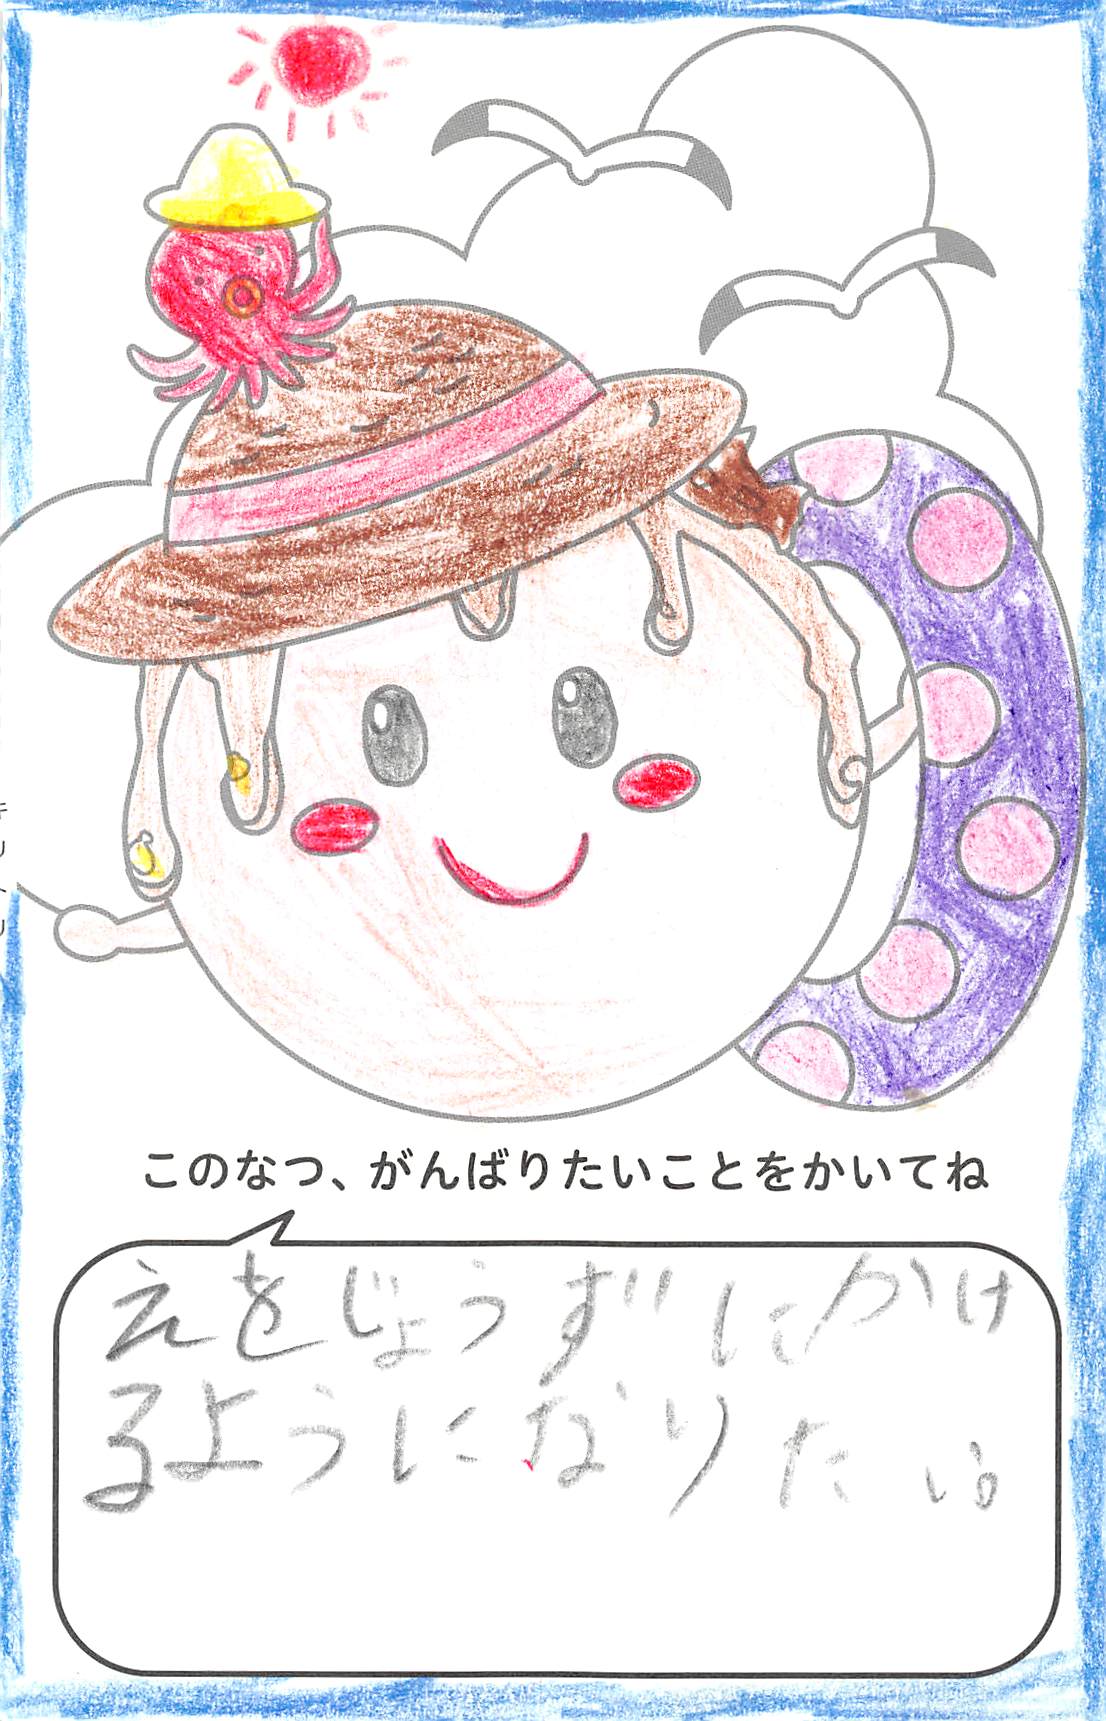 このなつ、がんばりたいことをかいてね
えをじょうずにかけ
るようになりたい。
キリトリ